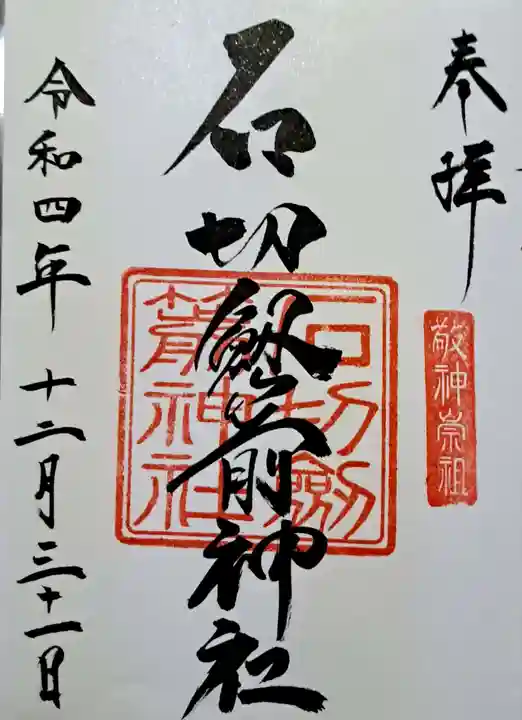 奉拝
敬神崇祖
石切劔箭神社
石切劔
箭神社
令和四年 十二月三十一日